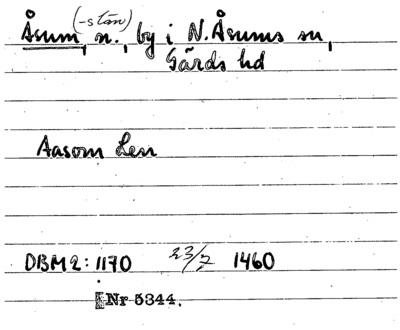 (-stån)
Åsum, n., by i N. Åsums sn,
Gärds hd
Aasom Len
DBM 2: 1170 23/7 1460
Nr 5344.